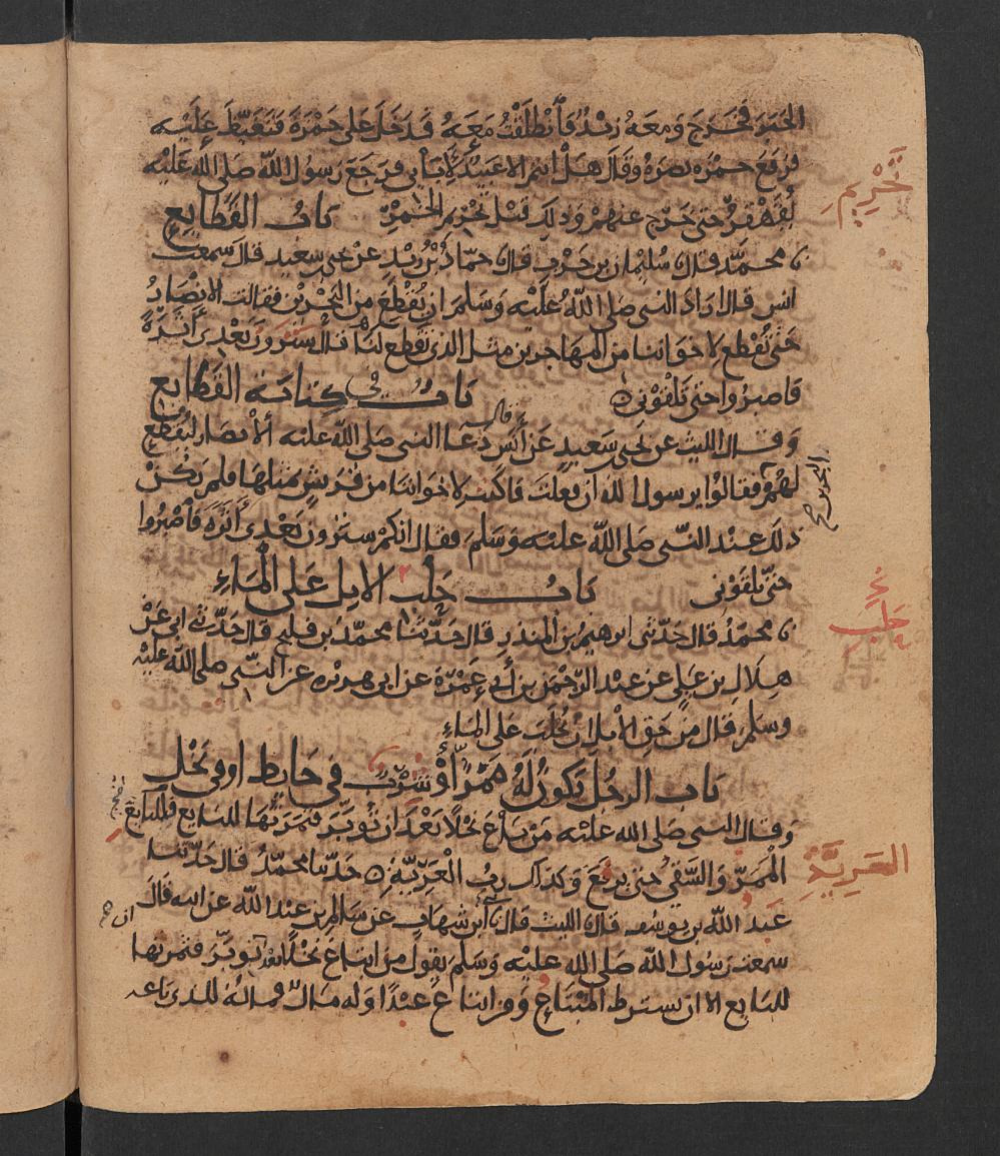 الخبر فخرج ومعه زيد فانطلقت معه فدخل على حمزة فتغيظ عليه
فرفع حمزة بصره وقال هل انتم الا عبيد لابأبي فرجع رسول الله صلى الله عليه
يقهقر حتى خرج عنهم وذلك قبل تحريم الخمر باب القطايع
محمد قال سليمان بن حرب قال حماد بن زيد عن يحيى بن سعيد قال سمعت
انس قال اراد النبي صلى الله عليه وسلم ان يقطع من البحرين فقالت الانصار
حتى تقطع لاخواننا من المهاجرين مثل الذي تقطع لنا قال سترون بعدي أثرة
فاصبروا حتى تلقوني باب في كتابة القطايع
وقال الليث عن يحيى بن سعيد عن أنس قال دعا النبي صلى الله عليه الأنصار ليقطع
لهم فقالوا يرسول الله ان فعلت فاكتب لاخواننا من قريش بمثلها فلم يكن
ذلك عند النبي صلى الله عليه وسلم فقال انكم سترون بعدي أثرة فاصبروا
حتى تلقوني باب حلب الابل على الماء
محمد قال حدثني ابرهيم بن المنذر قال حدثنا محمد بن فليح قال حدثني ابي عن
هلال بن علي عن عبد الرحمن بن أبي عمرة عن ابي هريرة عن النبي صلى الله عليه
وسلم قال من حق الابل ان تحلب على الماء
باب الرجل يكون له ممر أو شرب في حايط او في نخل
وقال النبي صلى الله عليه من باع نخلا بعد ان تؤبر فثمرتها للبايع فللبايع
الممر والسقي حتى يرفع وكذلك رب العرية حدثنا محمد قال حدثنا
عبد الله بن يوسف قال الليث قال ابن شهاب عن سالم بن عبد الله عن ابيه قال
سمعت رسول الله صلى الله عليه وسلم يقول من ابتاع نخلا بعد ان تؤبر فثمرتها
للبايع الا ان يشترط المبتاع ومن ابتاع عبدا وله مال فماله للذي باعه
تحريم
البحرين
حلب
العرية